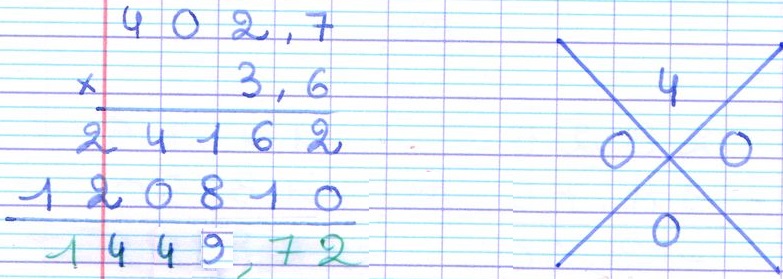 402,7
× 3,6
24162
120810
1449,72
4
0 0
0